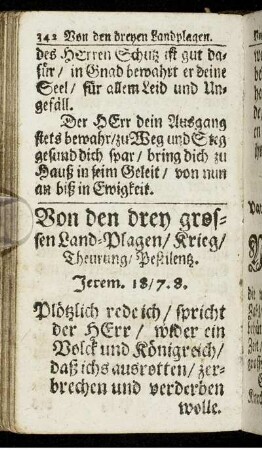 342 Von den dreyen Landplagen.
des HErren Schutz ist gut da-
für / in Gnad bewahrt er deine
Seel / für allem Leid und Un-
gefäll.
Der HErr dein Ausgang
stets bewahr / zu Weg und Steg
gesund dich spar / bring dich zu
Hauß in seim Geleit / von nun
an biß in Ewigkeit.
Von den drey gros-
sen Land-Plagen / Krieg /
Theurung / Pestilentz.
Jerem. 18 / 7. 8.
Plötzlich rede ich / spricht
der HErr / wider ein
Volck und Königreich /
daß ichs ausrotten / zer-
brechen und verderben
wolle.